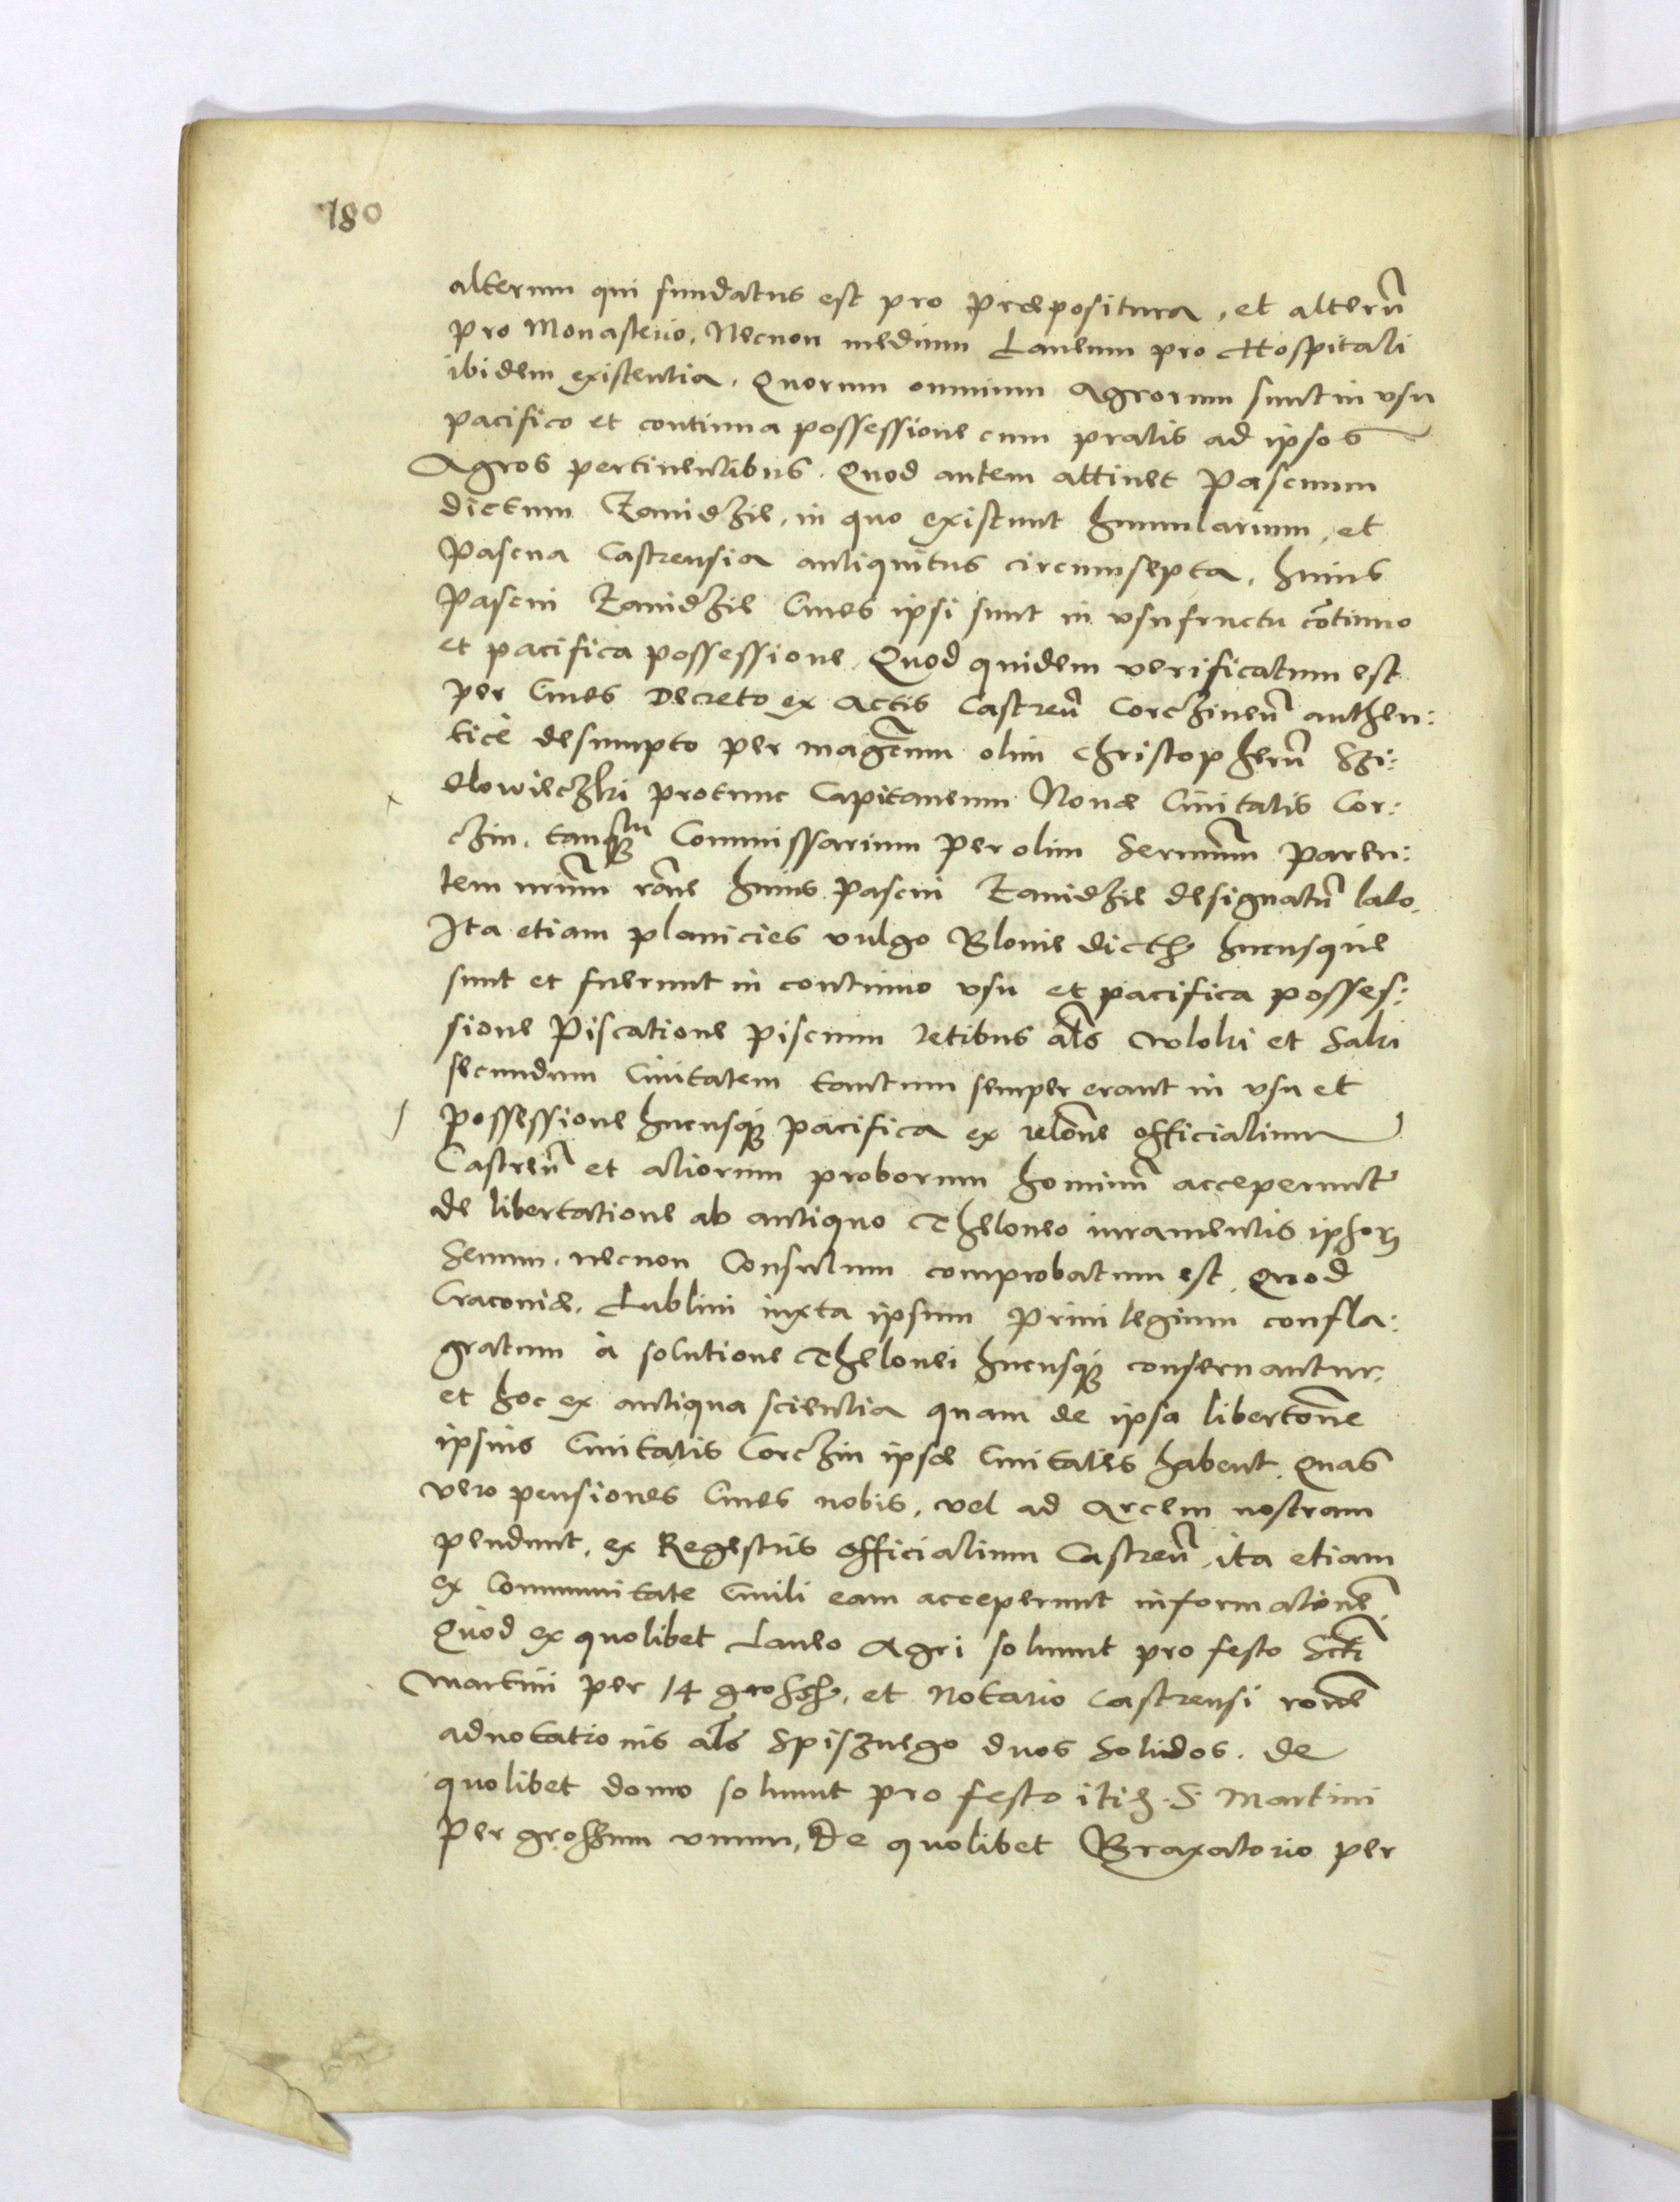 180
alterum qui fundatus est pro Præpositura, et alterũ
pro Monasterio, Necnon medium Laneum pro Hospitali
ibidem existentia. Quorum omnium Agrorum sunt in vsu
pacifico et continua possessione cum pratis ad ipsos
Agros pertinentibus. Quod autem attinet Pascuum
dictum Kawidzie, in quo existunt humularium, et
Pascua Castrensia antiquitus circumsepta, huius
Pascui Kawidzie Ciues ipsi sunt in vsufructu cõtinuo
et pacifica possessione. Quod quidem verificatum est
per Ciues Decreto ex Actis Castreñ Corczineñ authen:
ticè desumpto per magcum olim Christopherũ Szi:
dlowieczki protunc Capitaneum Nouæ Ciuitatis Cor:
czin, tanq̃ Commissarium per olim Sermum Paren:
tem nrũm rõne huius Pascui Kawidzie designatũ lato.
Ita etiam planicies vulgo Blonie dictæ hucusque
sunt et fuerunt in continuo vsu et pacifica posses:
sione Piscatione piscium retibus als wloki et Saki
secundum Ciuitatem tantum semper erant in vsu et
possessione hucusq; pacifica ex relõne officialium
Castreñ et aliorum proborum hominũ acceperunt
de libertatione ab antiquo Theloneo iuramentis ipsorꝫ
Senum, necnon Consulum comprobatum est, Quod
Cracouiæ, Lublini iuxta ipsum Priuilegium confla:
gratum à solutione Thelonei hucusq; conseruantur,
et hoc ex antiqua scientia quam de ipsa libertõne
ipsius Ciuitatis Corczin ipsæ Ciuitates habent. Quas
vero pensiones Ciues nobis, vel ad Arcem nostram
pendunt, ex Regestris officialium Castreñ, ita etiam
ex Communitate Ciuili eam acceperunt informationẽ,
Quòd ex quolibet Laneo Agri soluunt pro festo Scti
Martini per 14 grossos, et Notario Castrensi rõne
adnotationis als Spisznego duos Solidos. de
quolibet domo soluunt pro festo itid. S. Martini
per grossum vnum, De quolibet Braxatorio per